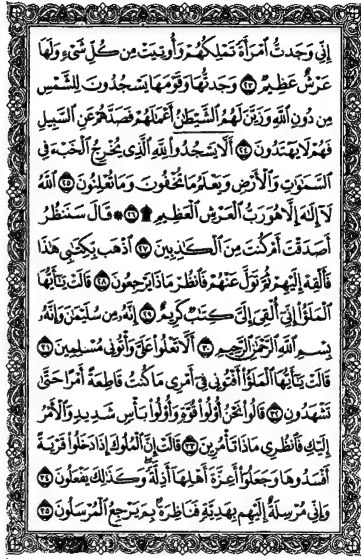 إِنِّي وَجَدتُّ ٱمْرَأَةً تَمْلِكُهُمْ وَأُوتِيَتْ مِن كُلِّ شَىْءٍ وَلَهَا
عَرْشٌ عَظِيمٌ ٢٣ وَجَدتُّهَا وَقَوْمَهَا يَسْجُدُونَ لِلشَّمْسِ
مِن دُونِ ٱللَّهِ وَزَيَّنَ لَهُمُ ٱلشَّيْطَٰنُ أَعْمَٰلَهُمْ فَصَدَّهُمْ عَنِ ٱلسَّبِيلِ
فَهُمْ لَا يَهْتَدُونَ ٢٤ أَلَّا يَسْجُدُوا۟ لِلَّهِ ٱلَّذِى يُخْرِجُ ٱلْخَبْءَ فِى
ٱلسَّمَٰوَٰتِ وَٱلْأَرْضِ وَيَعْلَمُ مَا تُخْفُونَ وَمَا تُعْلِنُونَ ٢٥ ٱللَّهُ
لَآ إِلَٰهَ إِلَّا هُوَ رَبُّ ٱلْعَرْشِ ٱلْعَظِيمِ ۩ ٢٦ ۞ قَالَ سَنَنظُرُ
أَصَدَقْتَ أَمْ كُنتَ مِنَ ٱلْكَٰذِبِينَ ٢٧ ٱذْهَب بِّكِتَٰبِى هَٰذَا
فَأَلْقِهْ إِلَيْهِمْ ثُمَّ تَوَلَّ عَنْهُمْ فَٱنظُرْ مَاذَا يَرْجِعُونَ ٢٨ قَالَتْ يَٰٓأَيُّهَا
ٱلْمَلَؤُا۟ إِنِّىٓ أُلْقِىَ إِلَىَّ كِتَٰبٌ كَرِيمٌ ٢٩ إِنَّهُۥ مِن سُلَيْمَٰنَ وَإِنَّهُۥ
بِسْمِ ٱللَّهِ ٱلرَّحْمَٰنِ ٱلرَّحِيمِ ٣٠ أَلَّا تَعْلُوا۟ عَلَىَّ وَأْتُونِى مُسْلِمِينَ ٣١
قَالَتْ يَٰٓأَيُّهَا ٱلْمَلَؤُا۟ أَفْتُونِى فِىٓ أَمْرِى مَا كُنتُ قَاطِعَةً أَمْرًا حَتَّىٰ
تَشْهَدُونِ ٣٢ قَالُوا۟ نَحْنُ أُو۟لُوا۟ قُوَّةٍ وَأُو۟لُوا۟ بَأْسٍ شَدِيدٍ وَٱلْأَمْرُ
إِلَيْكِ فَٱنظُرِى مَاذَا تَأْمُرِينَ ٣٣ قَالَتْ إِنَّ ٱلْمُلُوكَ إِذَا دَخَلُوا۟ قَرْيَةً
أَفْسَدُوهَا وَجَعَلُوٓا۟ أَعِزَّةَ أَهْلِهَآ أَذِلَّةً وَكَذَٰلِكَ يَفْعَلُونَ ٣٤
وَإِنِّى مُرْسِلَةٌ إِلَيْهِم بِهَدِيَّةٍ فَنَاظِرَةٌۢ بِمَ يَرْجِعُ ٱلْمُرْسَلُونَ ٣٥